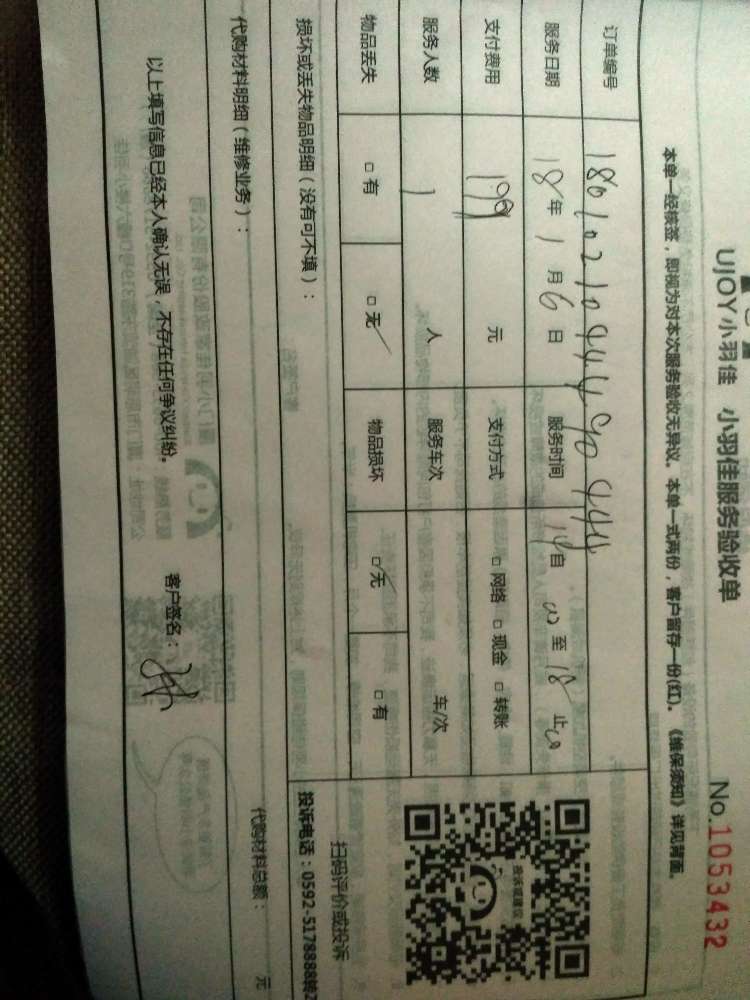 UJOY小羽佳 小羽佳服务验收单
No.1053432
本单一经核签，即视为对本次服务验收无异议。本单一式两份，客户留存一份(红)。《维保须知》详见背面。
订单编号
服务日期 18年 1月 6日 服务时间 14自 00 至 18 止00
支付费用 199 元 支付方式 □ 网络 □ 现金 □ 转账
服务人数 1 人 服务车次 车/次
物品丢失 □ 有 □ 无 物品损坏 □ 无 □ 有
扫码评价或投诉
损坏或丢失物品明细（没有可不填）：
投诉电话：0592-5178888转2
代购材料明细（维修业务）：
代购材料总额： 元
以上填写信息已经本人确认无误，不存在任何争议纠纷。
客户签名：